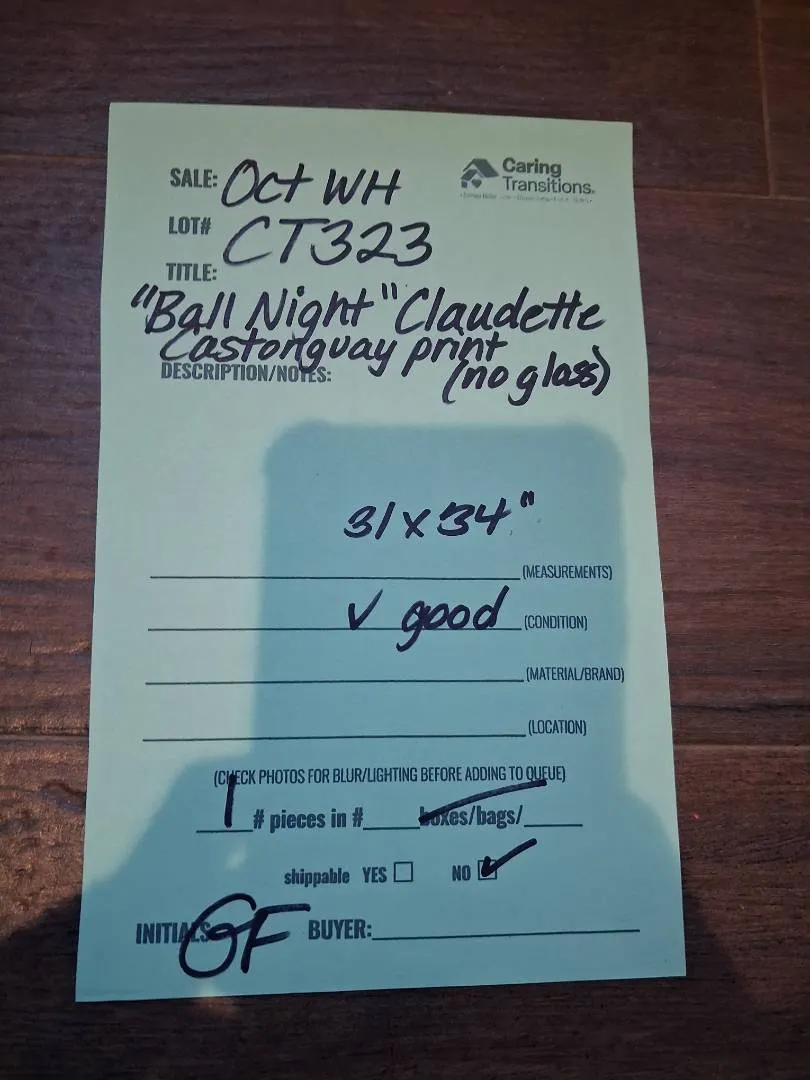 SALE: Oct WH
Caring
Transitions.
LOT# CT323
TITLE:
"Ball Night" Claudette
Castonguay print
DESCRIPTION/NOTES: (no glass)
31 x 34"
(MEASUREMENTS)
✓ good (CONDITION)
(MATERIAL/BRAND)
(LOCATION)
(CHECK PHOTOS FOR BLUR/LIGHTING BEFORE ADDING TO QUEUE)
1 # pieces in # boxes/bags/
shippable YES ☐ NO ☑
INITIALS GF BUYER: